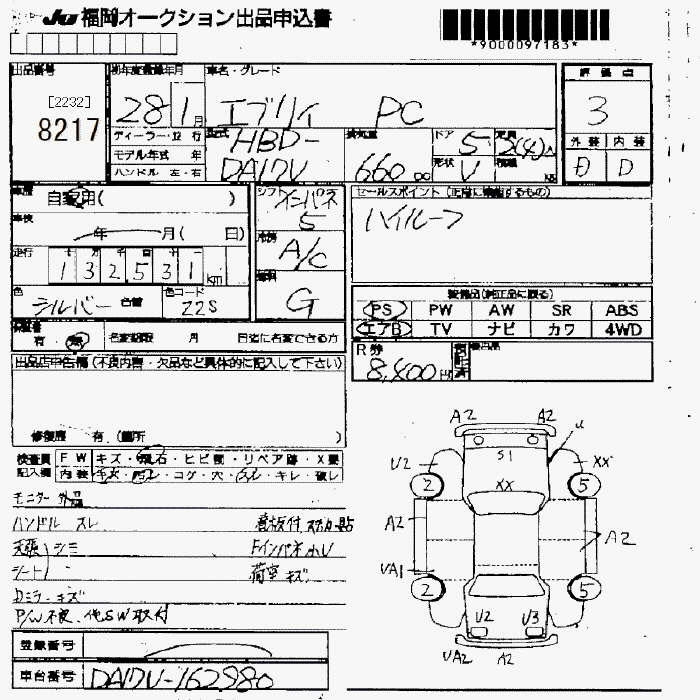 JU 福岡オークション出品申込書
*9000097183*
出品番号 初年度登録年月 車名・グレード 評価点
[2232]
8217
28 1月 エブリィ PC 3
ディーラー・並行 型式 排気量 ドア 定員 外装 内装
モデル年式 年 HBD- 5 2(4)人
ハンドル 左・右 DA17V 660 cc 形状 V 積載 D D
車歴 自家用( ) シフト インパネ 5 セールスポイント (正常に機能するもの)
車検 年 月( 日) 冷房 A/C ハイルーフ
走行 十 万 千 百 十 一
132531 km 燃料 G
色 シルバー 色替 色コード 22S
装備品(純正品に限る)
PS PW AW SR ABS
エアB TV ナビ カワ 4WD
保証書 有・無 名変期限 月 日迄に名変できる方
R券 8,400円
出品店申告欄 (不良内容・欠品など具体的に記入して下さい)
修復歴 有 (箇所 )
検査員 FW キズ・飛石・ヒビ割・リペア跡・X要
記入欄 内装 キズ・コゲ・穴・スレ・キレ・破レ
モニター 外品
ハンドル スレ 意板付
天張 シミ Fインパネ
シート 荷室 キズ
ミラー キズ
P/W不良、他SW取付
A2 A2
U
S1
V2 XX XX
2 5
A2 A2
VA1
2 5
V2 V3
VA2 A2
登録番号
車台番号 DA17V-162980